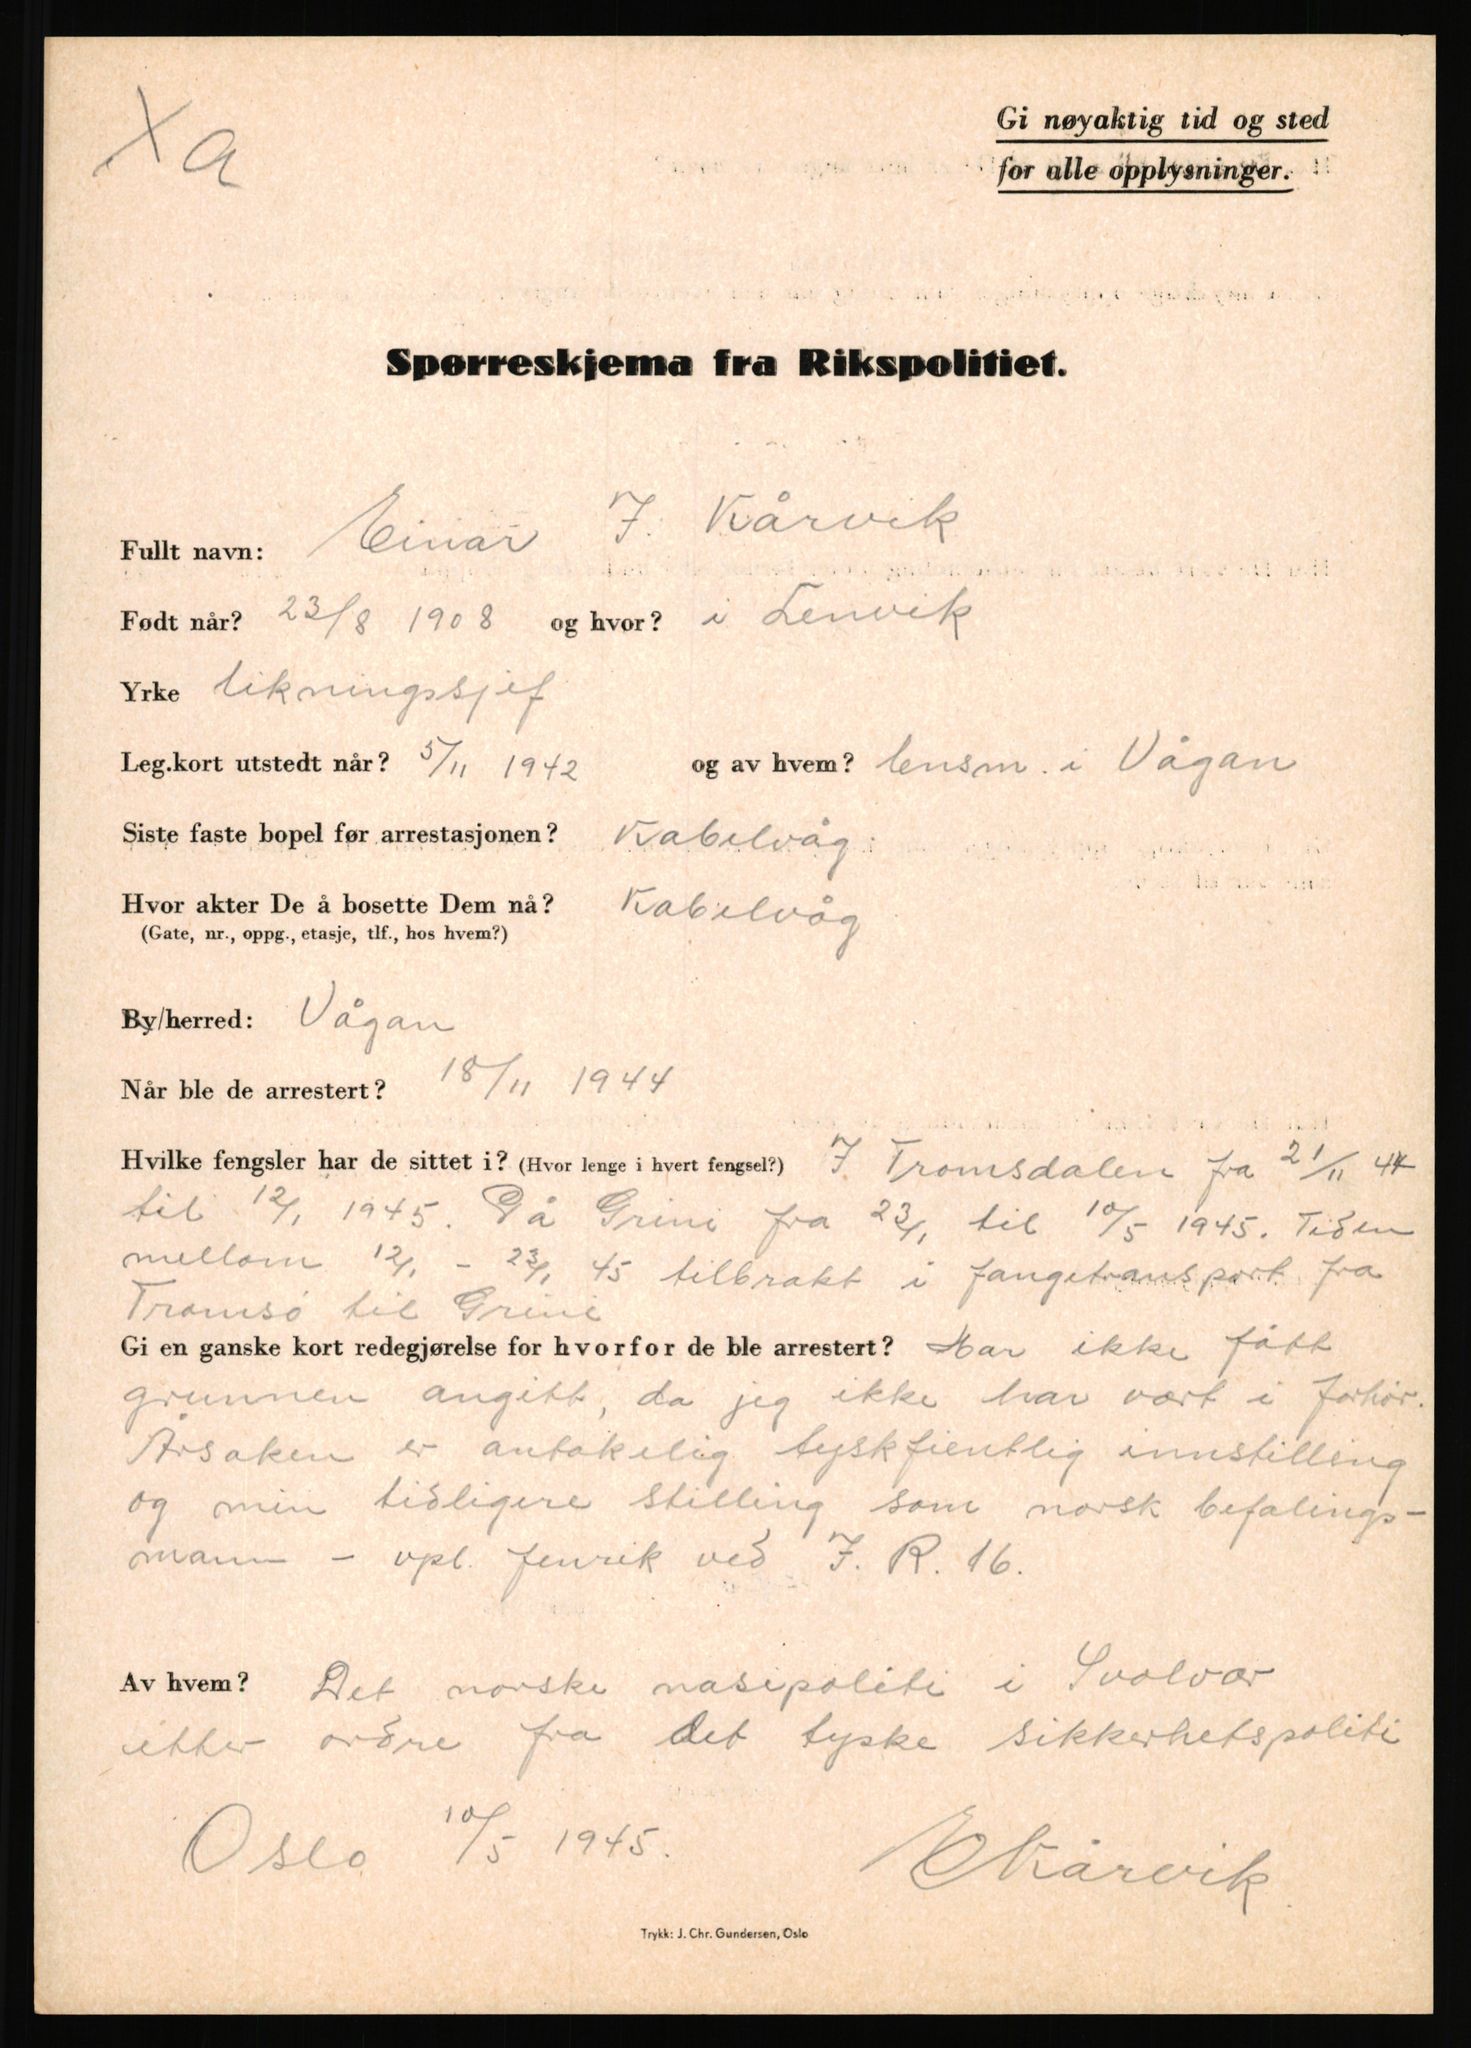 Xa
Gi nøyaktig tid og sted
for alle opplysninger.
Spørreskjema fra Rikspolitiet.
Fullt navn: Einar J. Kårvik
Født når? 23/8 1908 og hvor? i Lenvik
Yrke likningssjef
Leg.kort utstedt når? 5/11 1942 og av hvem? lensm. i Vågan
Siste faste bopel før arrestasjonen? Kabelvåg
Hvor akter De å bosette Dem nå? Kabelvåg
(Gate, nr., oppg., etasje, tlf., hos hvem?)
By/herred: Vågan
Når ble de arrestert? 18/11 1944
Hvilke fengsler har de sittet i? (Hvor lenge i hvert fengsel?) I Tromsdalen fra 21/11 44
til 12/1 1945. På Grini fra 23/1 til 10/5 1945. Tiden
mellom 12/1 - 23/1 45 tilbrakt i fangetransport fra
Tromsø til Grini
Gi en ganske kort redegjørelse for hvorfor de ble arrestert? Har ikke fått
grunnen angitt, da jeg ikke har vært i forhør.
Årsaken er antakelig tyskfientlig innstilling
og min tidligere stilling som norsk befalings-
mann - vpl. fenrik ved I. R. 16.
Av hvem? Det norske nasipoliti i Svolvær
etter ordre fra det tyske sikkerhetspoliti
Oslo 10/5 1945.
E Kårvik
Trykk: J. Chr. Gundersen, Oslo